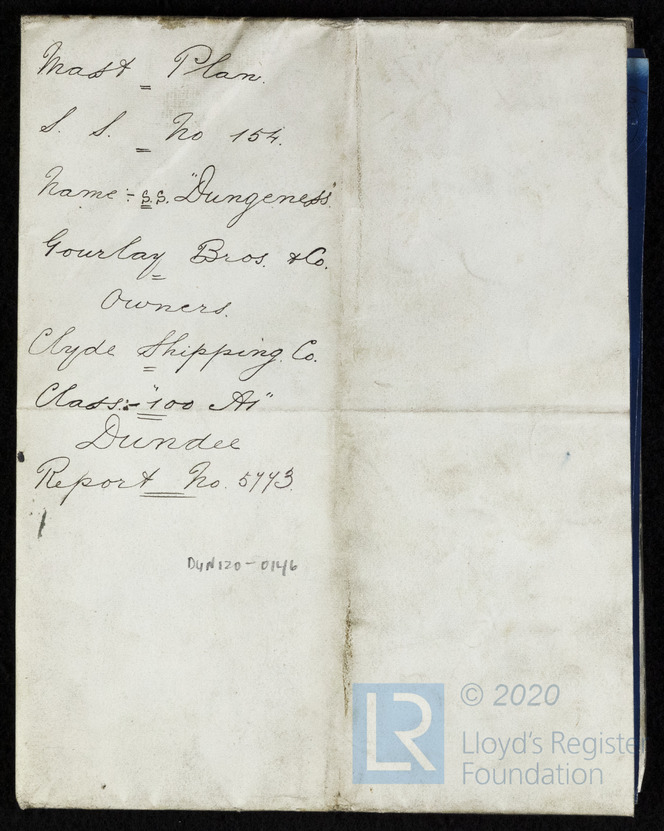 Mast = Plan.
S. S. = No 154.
Name:- s.s. "Dungeness"
Gourlay Bros. & Co.
Owners.
Clyde Shipping. Co.
Class:- "100 A1"
Dundee
Report No. 5773.
DUN120-0146
© 2020
LR
Lloyd's Registe
Foundation